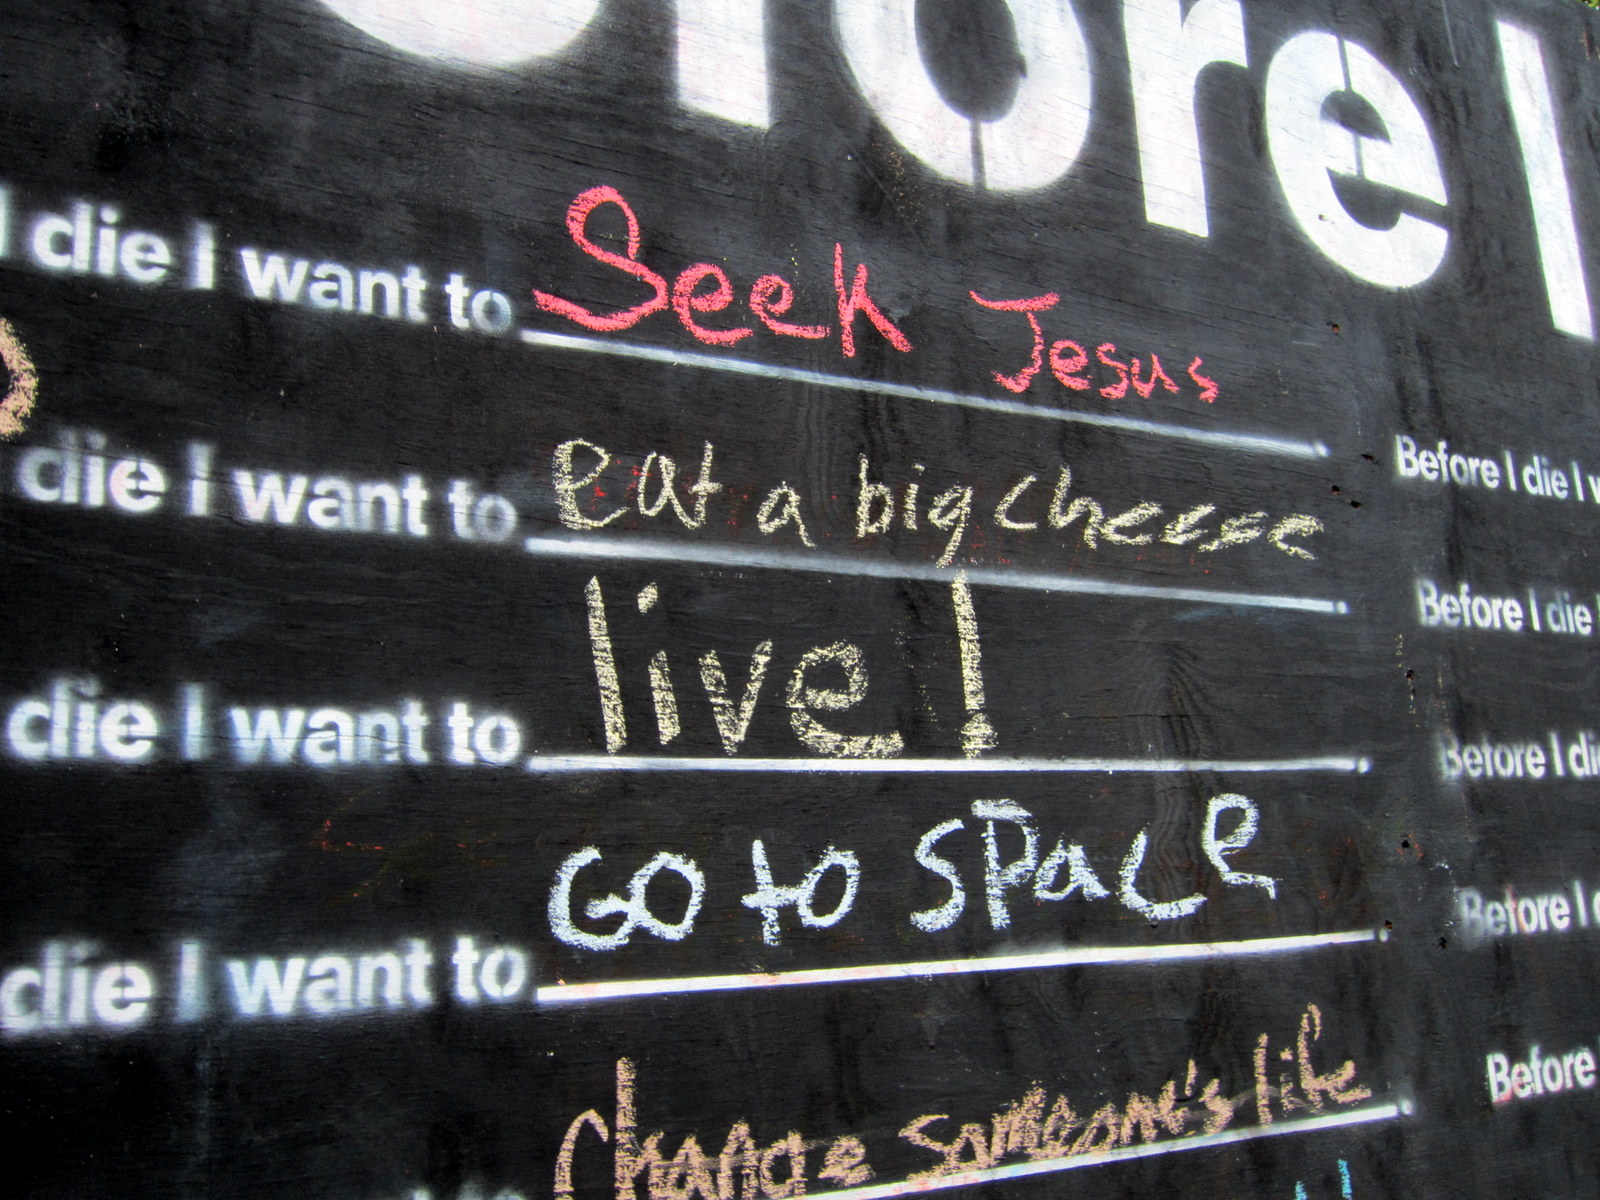 efore I
I die I want to Seek Jesus
die I want to eat a big cheese
Before I die I w
die I want to live!
Before I die
die I want to Go to space
Before I die
Before I d
die I want to change someone's life
Before